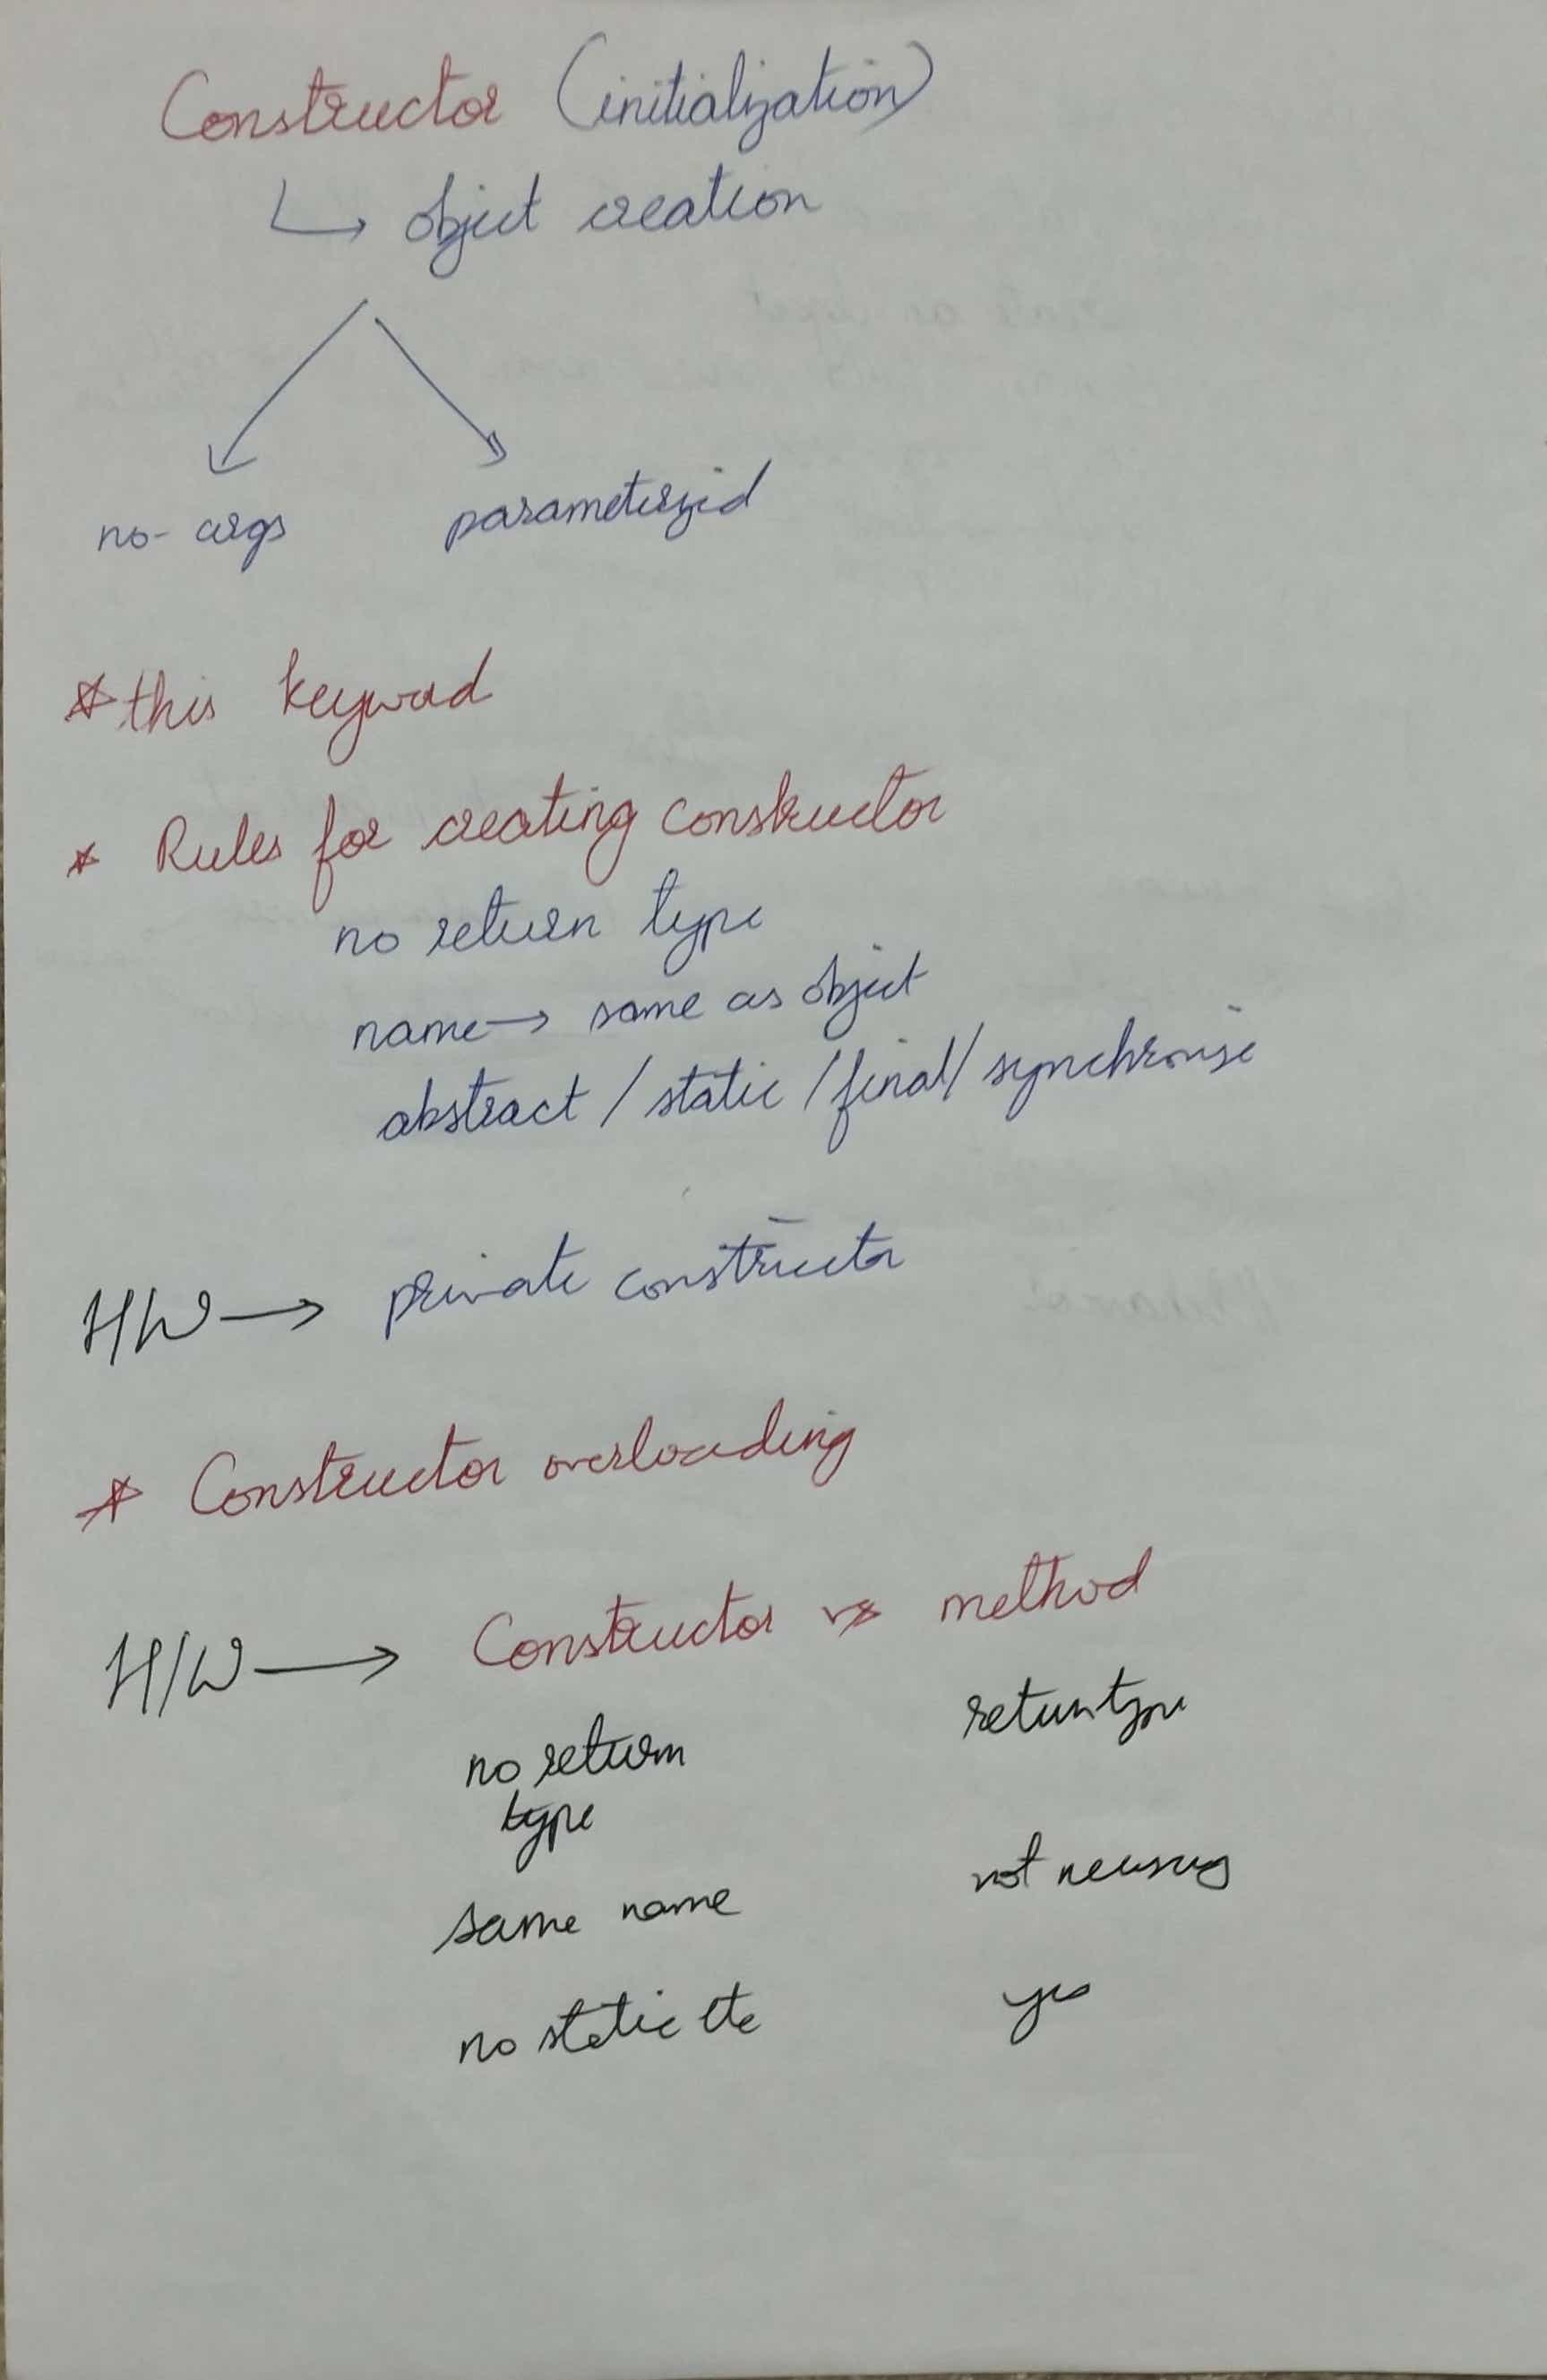 Constructor (initialization)
↳ object creation
no-args parameterzied
* this keyword
* Rules for creating constructor
no return type
name → same as object
abstract / static / final / synchronise
H/W → private constructor
* Constructor overloading
H/W → Constructor vs method
no return type
return type
same name not necessary
no static etc yes